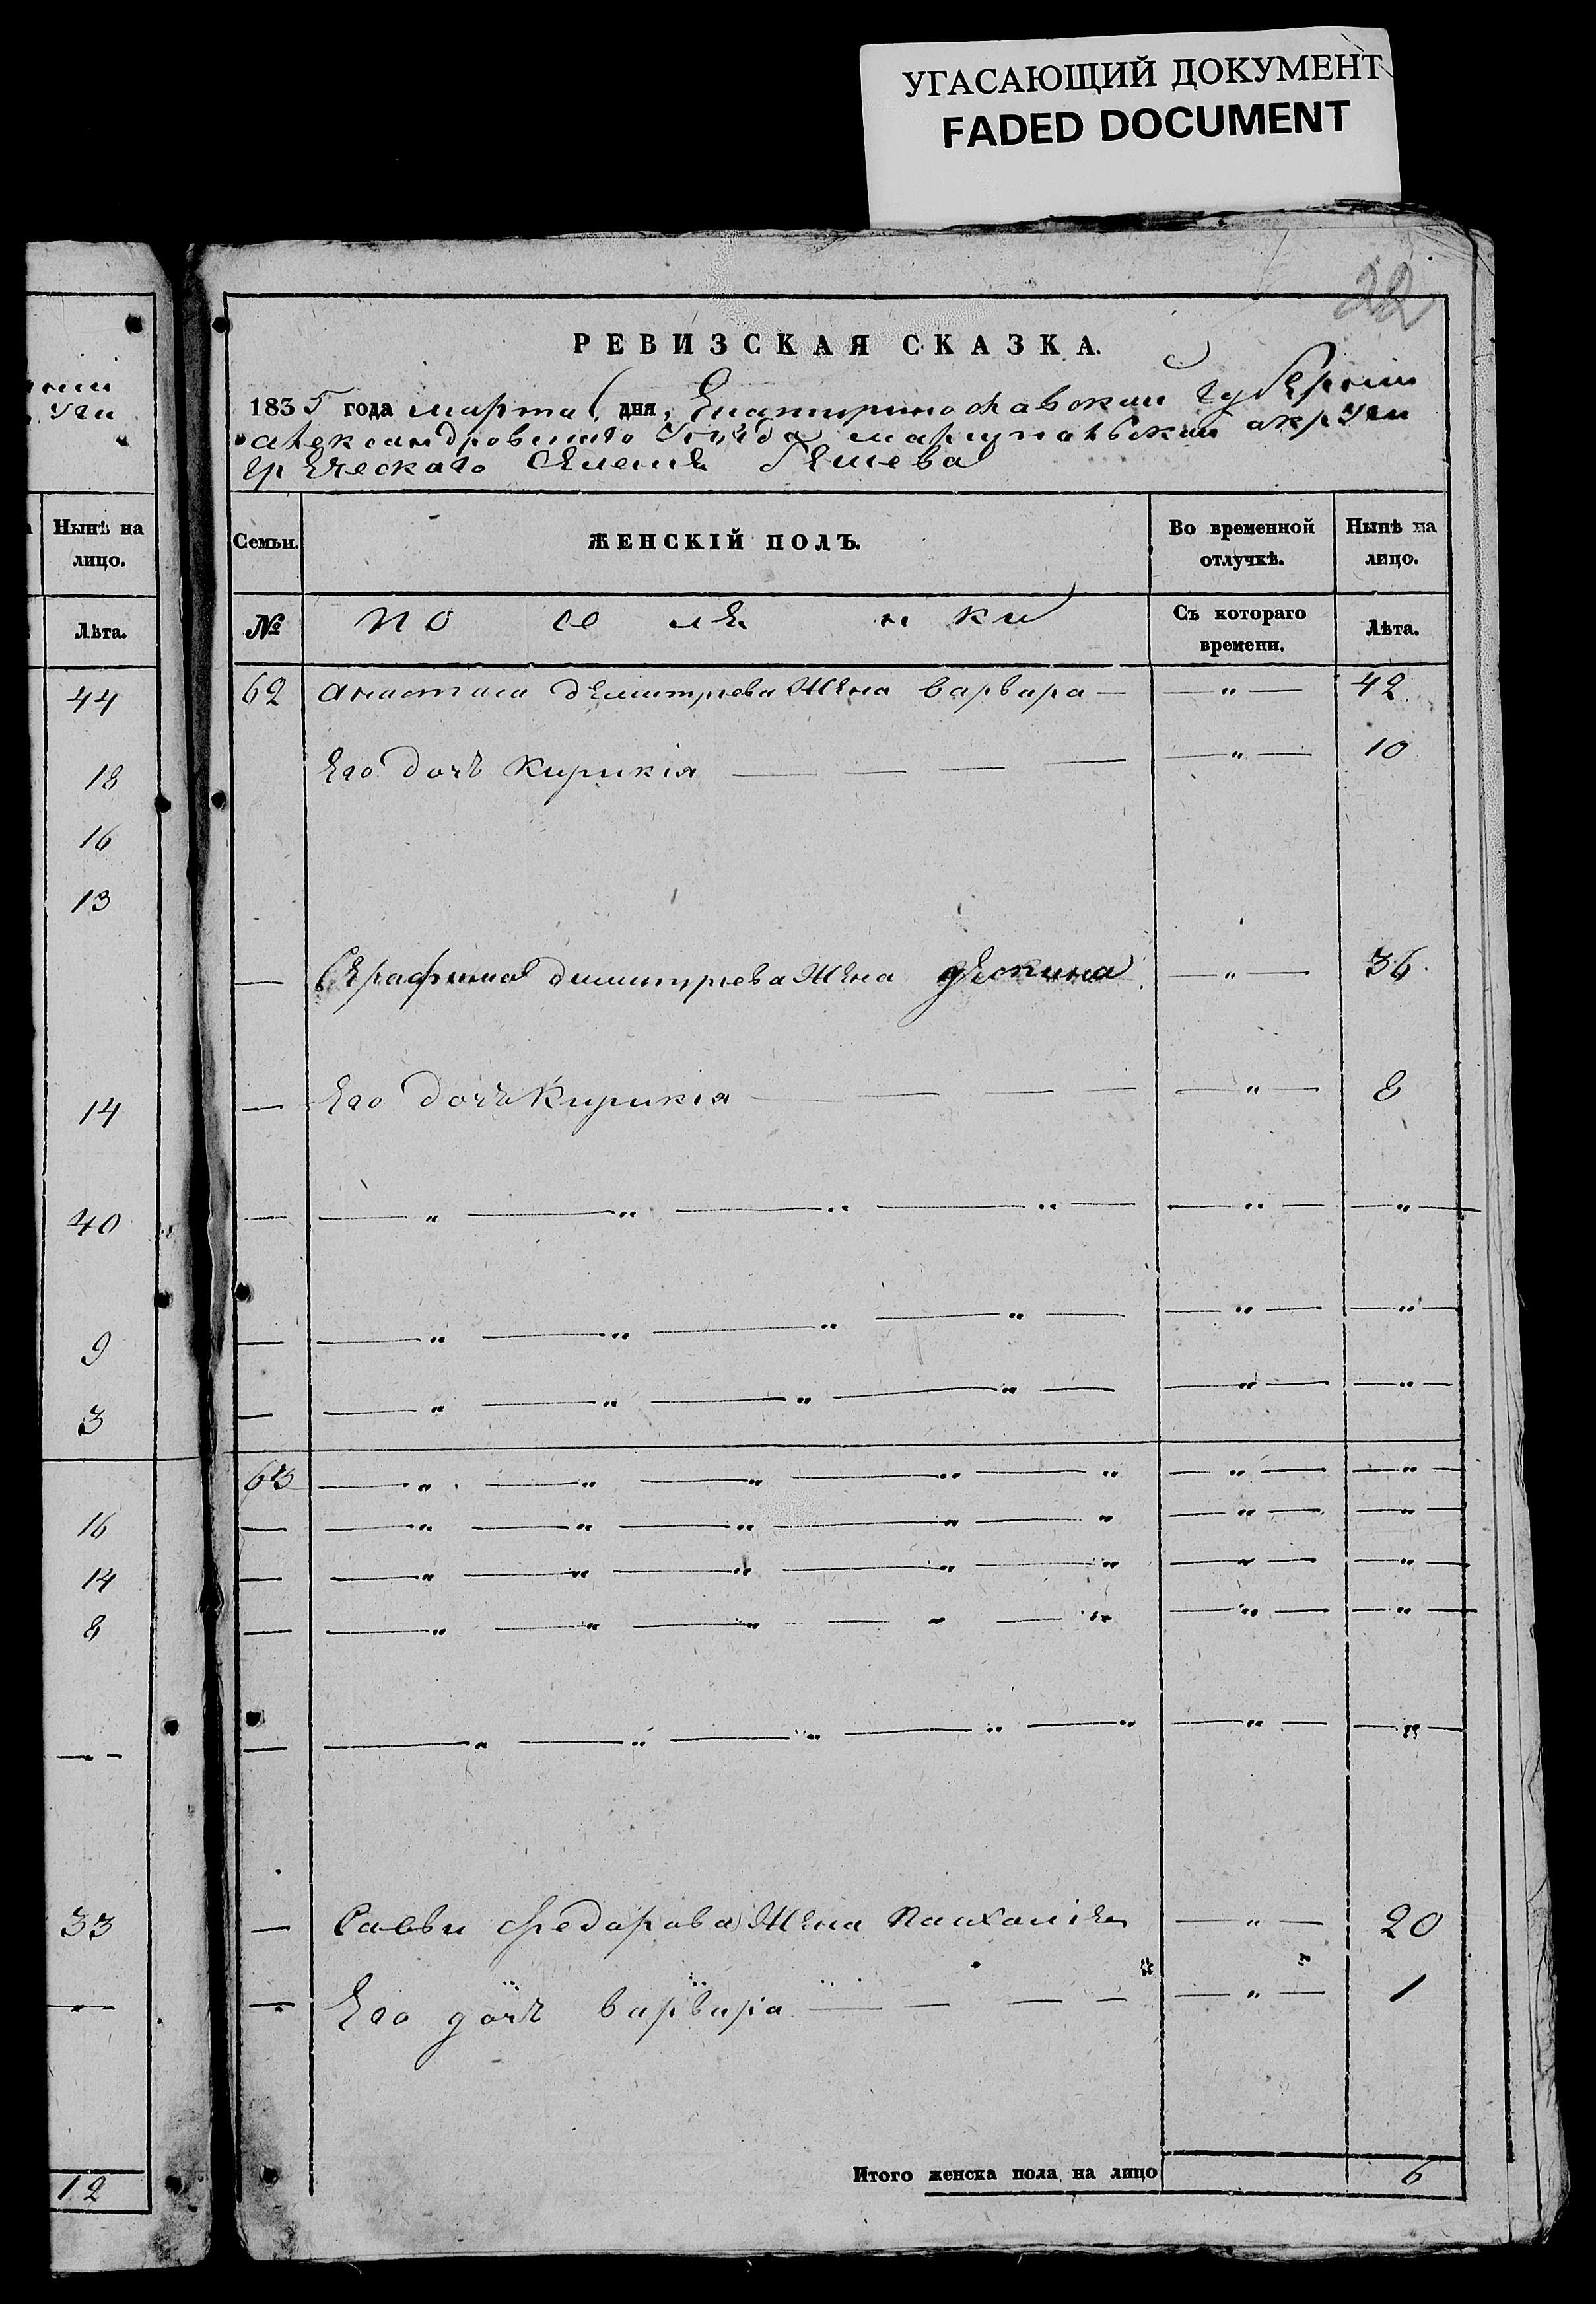 УГАСАЮЩИЙ ДОКУМЕНТ
FADED DOCUMENT
22
РЕВИЗСКАЯ СКАЗКА.
1835 года марта дня, Екатиринославской Губернии
александровскаго Уезда мариупольскаи акруги
Греческаго Селения Бешева
Нынѣ на лицо.
Лѣта.
44
18
16
13
14
40
9
3
16
14
8
33
12
Семьи. ЖЕНСКІЙ ПОЛЪ. Во временной отлучкѣ. Нынѣ на лицо.
№ посе ле н ки Съ котораго времени. Лѣта.
62 Анастаса деmитриева Жена варвара — — " — 42
Его дочъ Кирикія — — — — — " — 10
— Серафима димитриева Жена — " — 36
— Его дочъ Кирикія — — — — " — 8
— — " — " — " — " — — " — — " —
— — " — " — " — " — — " — — " —
— — " — " — " — " — — " — — " —
63 — " — " — " — " — " — " — — " —
— — " — " — " — " — " — " — — " —
— — " — " — " — " — " — " — — " —
— — " — " — " — " — " — " — — " —
— — " — " — " — " — " — " — — " —
— Саввы Федарова Жена — " — 20
— Его дочъ варвара — — — — — " — 1
Итого женска пола на лицо 6